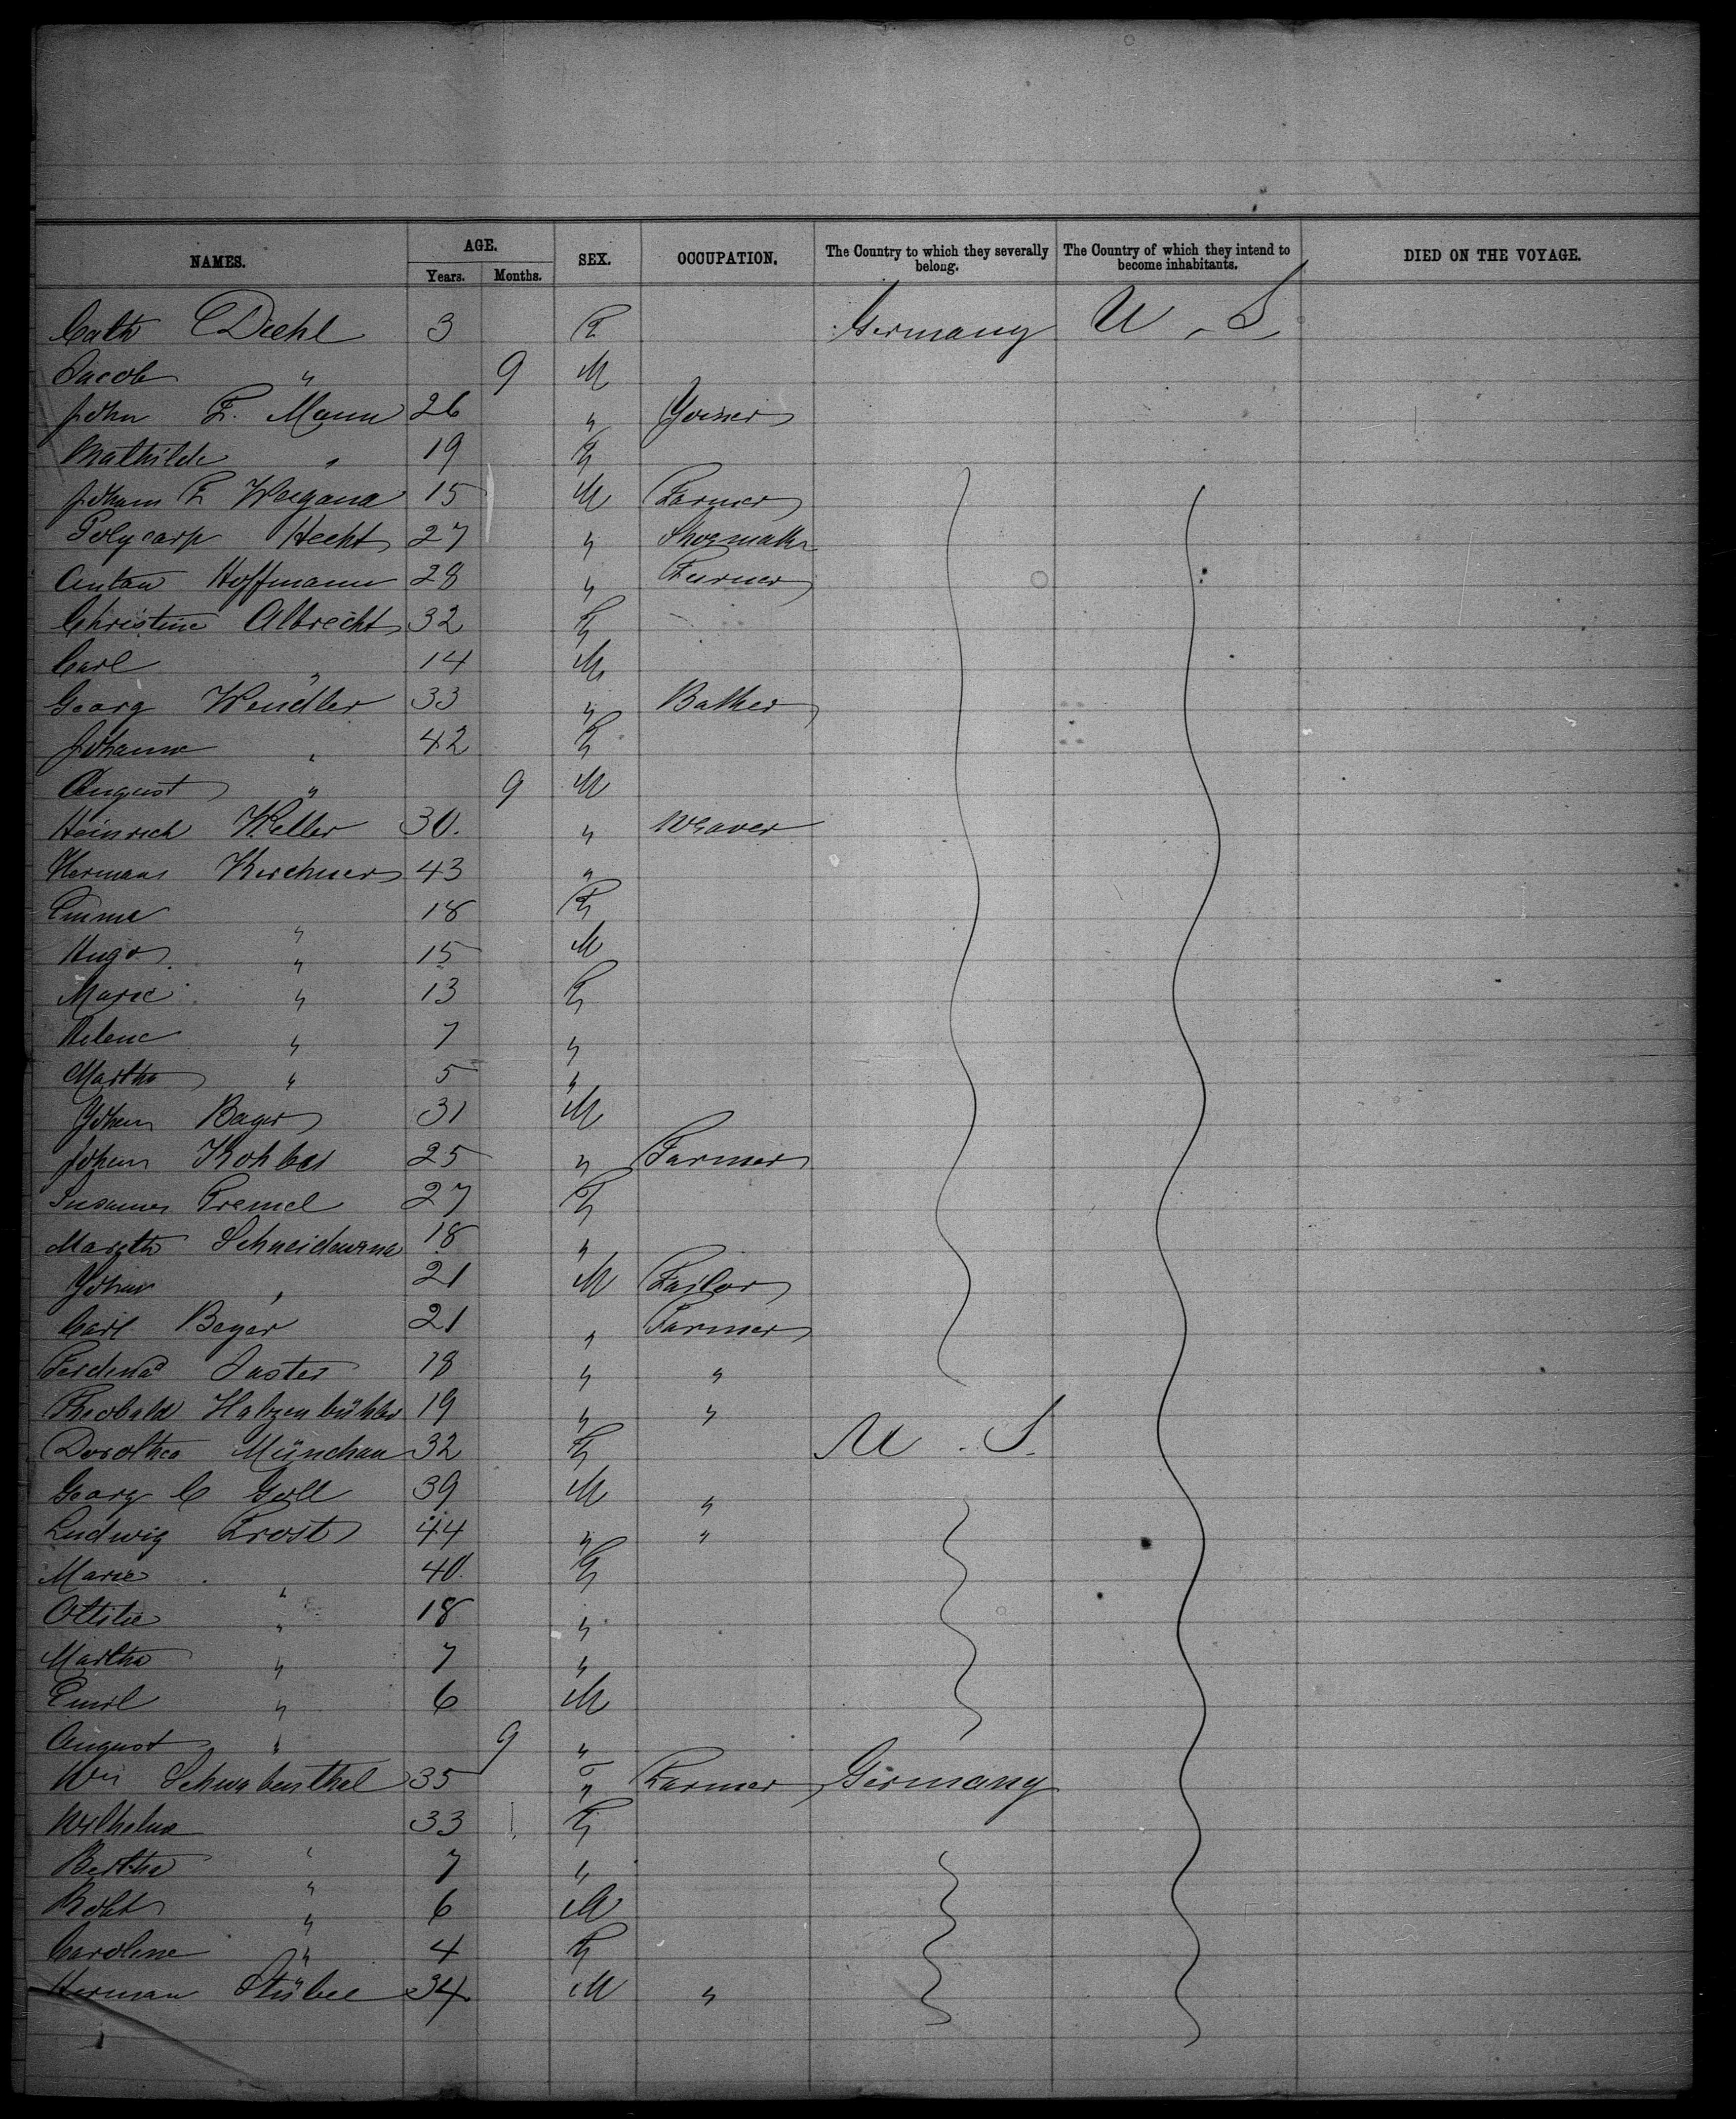 NAMES. AGE. SEX. OCCUPATION. The Country to which they severally belong. The Country of which they intend to become inhabitants. DIED ON THE VOYAGE.
Years. Months.
Cath Diehl 3 F Germany U. S.
Jacob " 9 M
John F. Mann 26 "
Mathilde " 19 F
Johann F 15 M Farmer
Polycarp Hecht 27 " Shoemaker
Anton Hoffmann 28 " Farmer
Christine Albrecht 32 F
Carl " 14 M
Georg Wendler 33 "
Johanne " 42 F
August " 9 M
Heinrich Keller 30. " Weaver
Hermann Kirchner 43 "
Emma " 18 F
Hugo " 15 M
Marie " 13 F
Helene " 7 "
Martha " 5 "
Johann 31 M
Johann 25 " Farmer
27 F
18 "
Johann " 21 M Tailor
Carl Beyer 21 " Farmer
Ferdind Jaster 18 " "
Theobald Halzenbühler 19 " "
Dorothea Münchau 32 F U. S.
Georg C Goll 39 M "
Ludwig Frost 44 " "
Marie " 40. F
Ottilie " 18 "
Martha " 7 "
Emil " 6 M
August " 9 "
Schwabenthal 35 " Farmer Germany
Wilhelma " 33 F
Bertha " 7 "
Robt " 6 M
Caroline " 4 F
Herman Stübel 34 M "